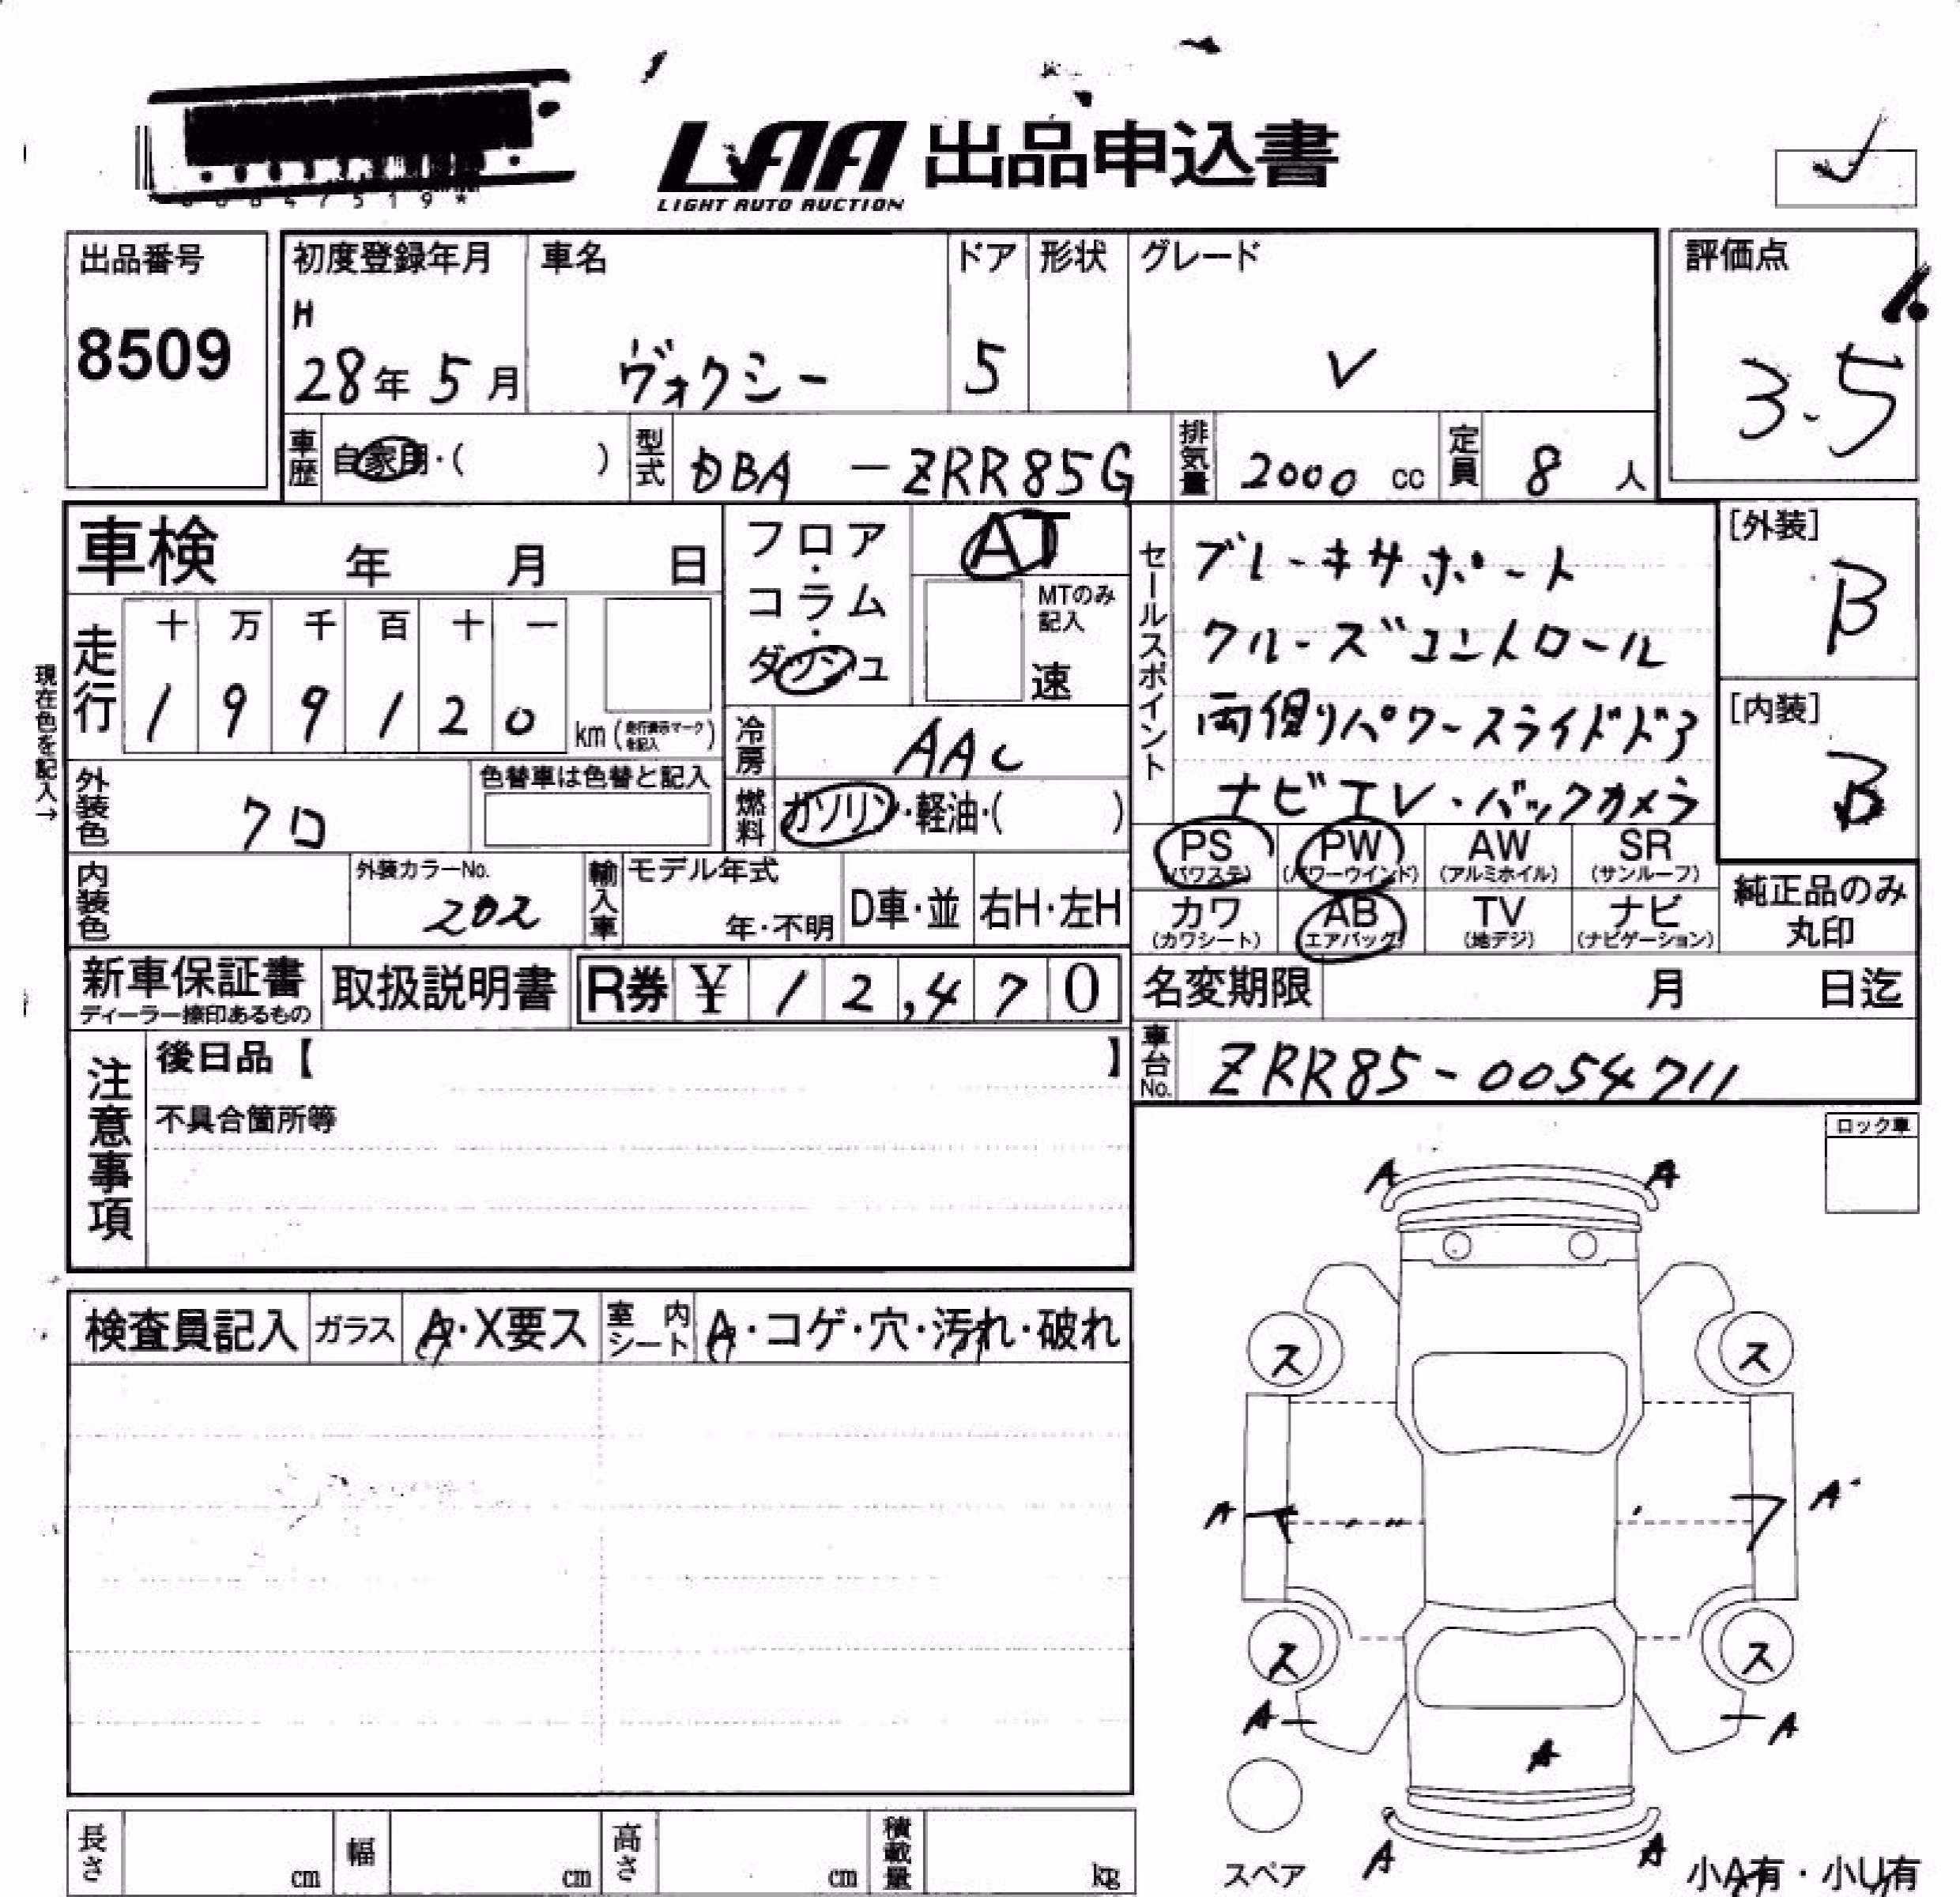 LAA 出品申込書
LIGHT AUTO AUCTION
出品番号
8509
初度登録年月
H
28年 5月
車名
ヴォクシー
ドア
5
形状
グレード
V
評価点
3.5
車歴
自家用・( )
型式
DBA -ZRR85G
排気量
2000 cc
定員
8 人
車検 年 月 日
走行
十 万 千 百 十 一
1 9 9 1 2 0 km (走行表示マークを記入)
現在色を記入→
外装色
クロ
色替車は色替と記入
内装色
外装カラーNo.
202
輸入車
モデル年式
年・不明
D車・並
右H・左H
フロア・コラム・ダッシュ
AT
MTのみ
記入
速
冷房
AAC
燃料
ガソリン・軽油・( )
セールスポイント
ブレーキサポート
クルーズコントロール
両側パワースライドドア
ナビTV・バックカメラ
[外装]
B
[内装]
B
PS (パワステ)
PW (パワーウインド)
AW (アルミホイル)
SR (サンルーフ)
カワ (カワシート)
AB (エアバッグ)
TV (地デジ)
ナビ (ナビゲーション)
純正品のみ
丸印
新車保証書
ディーラー捺印あるもの
取扱説明書
R券 ¥ 12,470
名変期限 月 日迄
車台No.
ZRR85-0054711
注意事項
後日品【 】
不具合箇所等
ロック車
検査員記入
ガラス
A・X要ス
室内シート
A・コゲ・穴・汚れ・破れ
A A
ス ス
A A
ス ス
A A
A
A A
スペア
小A有・小U有
長さ cm
幅 cm
高さ cm
積載量 kg